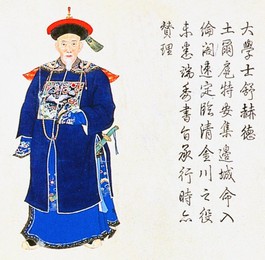 大學士舒赫德
土爾扈特安集邊城命入
倫閣速定臨清金川之役
未悉端委書旨承行時亦
贊理